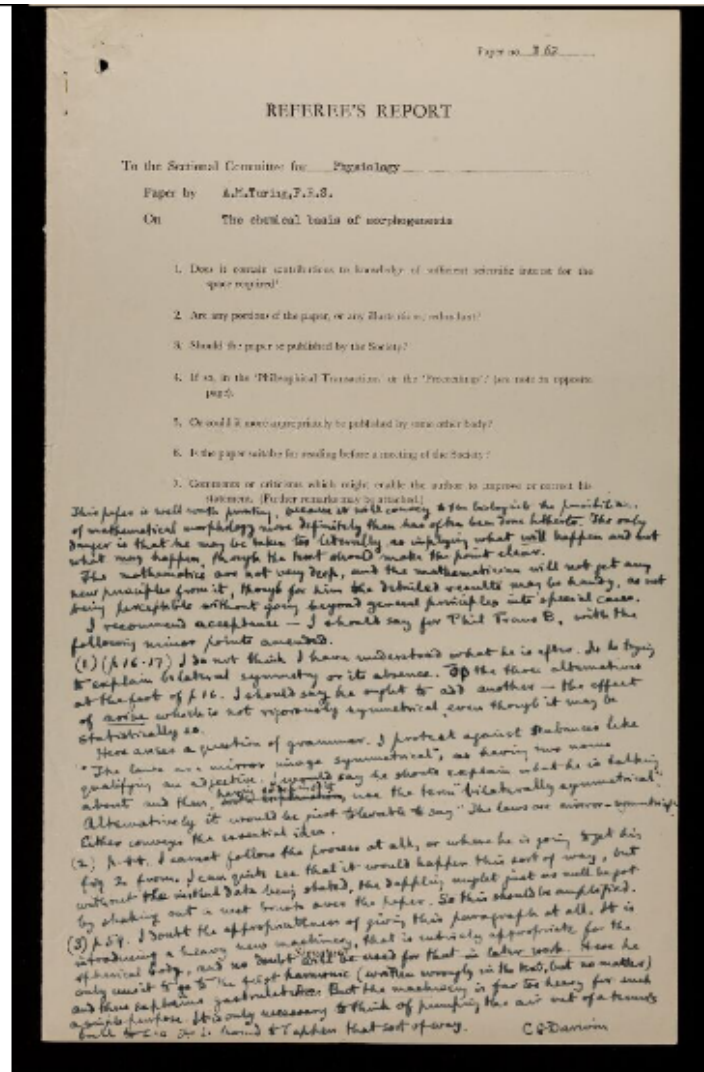 Paper no. B 62
REFEREE'S REPORT
To the Sectional Committee for Physiology
Paper by A.M.Turing,F.R.S.
On The chemical basis of morphogenesis
1. Does it contain contributions to knowledge of sufficient scientific interest for the
space required?
2. Are any portions of the paper, or any illustrations, redundant?
3. Should the paper be published by the Society?
4. If so, in the 'Philosophical Transactions' or the 'Proceedings'? (see note on opposite
page).
5. Or could it more appropriately be published by some other body?
6. Is the paper suitable for reading before a meeting of the Society?
7. Comments or criticisms which might enable the author to improve or correct his
statement. (Further remarks may be attached.)
This paper is well worth printing, because it will convey to the biologists the possibilities
of mathematical morphology more definitely than has often been done hitherto. The only
danger is that he may be taken too literally, as implying what will happen and not
what may happen, though the text should make the point clear.
The mathematics are not very deep, and the mathematicians will not get any
new principles from it, though for him the detailed results may be handy, as not
being perceptible without going beyond general principles into special cases.
I recommend acceptance — I should say for Phil Trans B, with the
following minor points amended.
(1) (p 16-17) I do not think I have understood what he is after. Is he trying
to explain bilateral symmetry or its absence. Of the three alternatives
at the foot of p 16. I should say he ought to add another — the effect
of noise which is not rigorously symmetrical even though it may be
statistically so.
Here arises a question of grammar. I protest against like
"The laws are mirror image symmetrical", as having two nouns
qualifying an adjective. I would say he should explain what he is talking
about and then, having explained, use the term "bilaterally symmetrical".
Alternatively it would be just tolerable to say "The laws are mirror-symmetrical".
Either conveys the essential idea.
(2) p. 44. I cannot follow the process at all, or where he is going to get his
fig 2 from. I can quite see that it would happen this sort of way, but
without the initial data being stated, the dappling might just as well be got
by shaking out a wet brush over the paper. So this should be amplified.
(3) p 59. I doubt the appropriateness of giving this paragraph at all. It is
introducing a heavy new machinery, that is entirely appropriate for the
spherical body, and no doubt will be used for that in later work. Here he
only uses it to go to the first harmonic (written wrongly in the text, but no matter)
and thus explains gastrulation. But the machinery is far too heavy for such
a simple purpose. It is only necessary to think of pumping the air out of a tennis
ball to see it is bound to happen that sort of way. C G Darwin